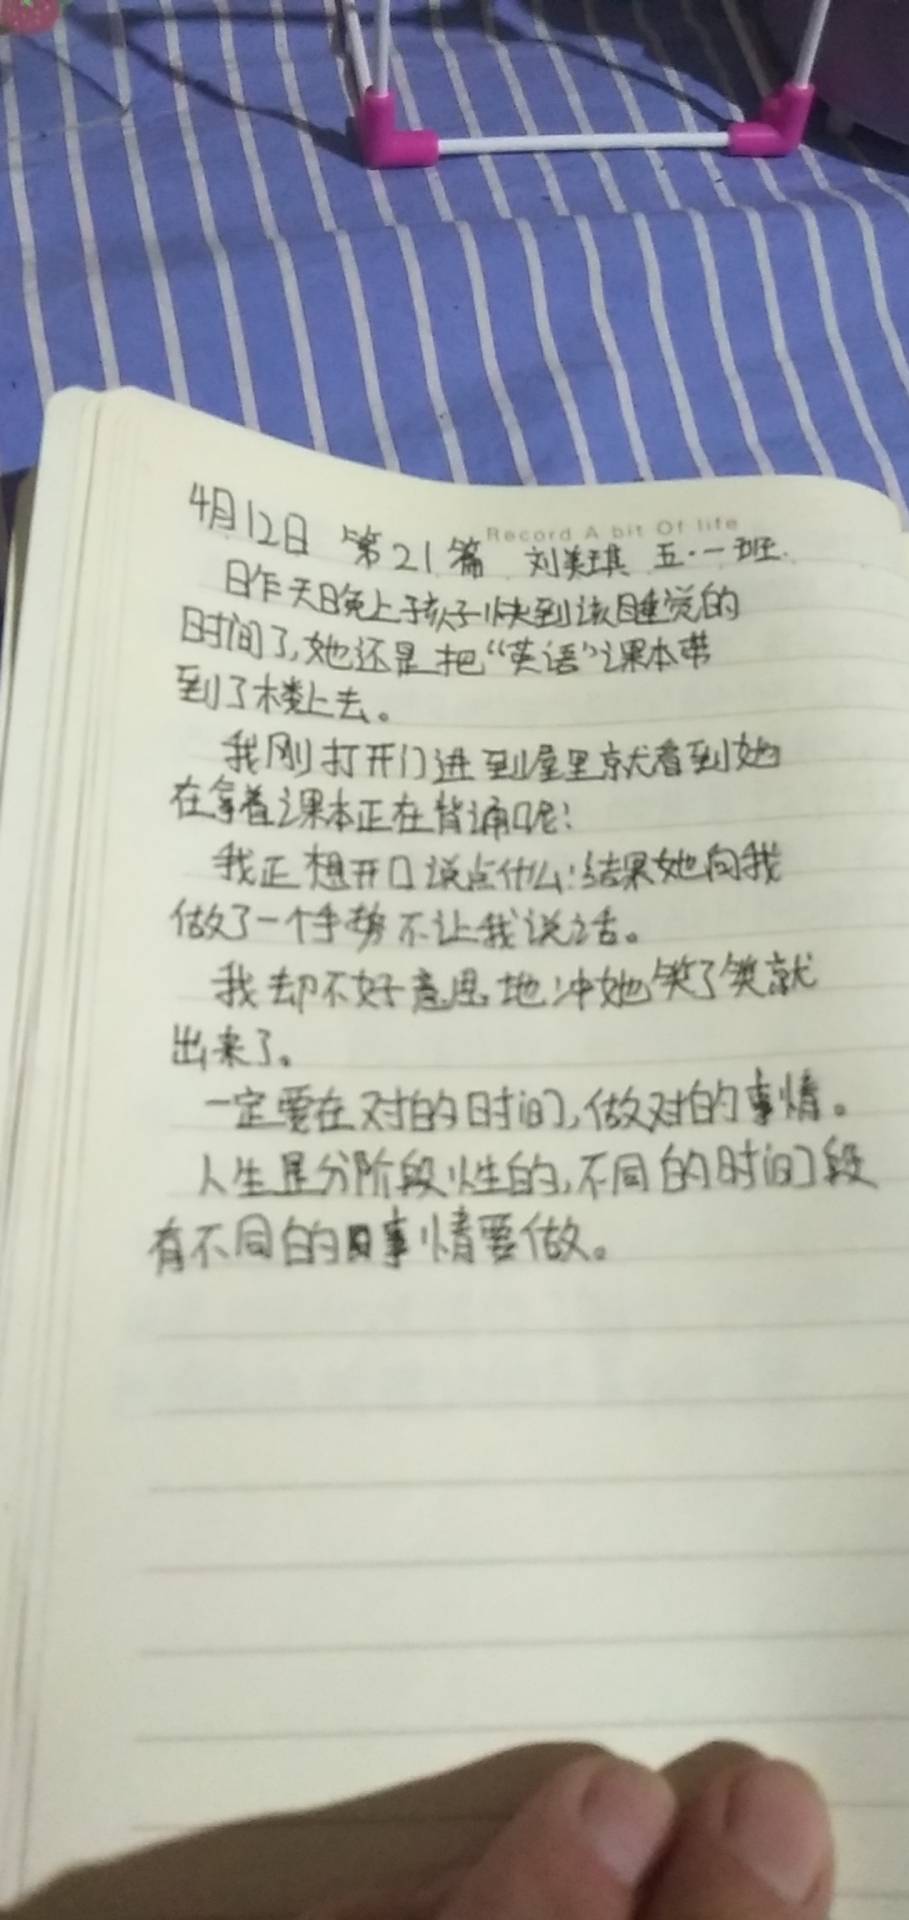 Record A bit Of life
4月12日 第21篇 刘美琪 五.一班.
昨天晚上孩子快到该睡觉的
时间了,她还是把“英语”课本带
到了楼上去。
我刚打开门进到屋里就看到她
在拿着课本正在背诵呢!
我正想开口说点什么!结果她向我
做了一个手势不让我说话。
我却不好意思地冲她笑了笑就
出来了。
一定要在对的时间,做对的事情。
人生是分阶段性的,不同的时间段
有不同的事情要做。